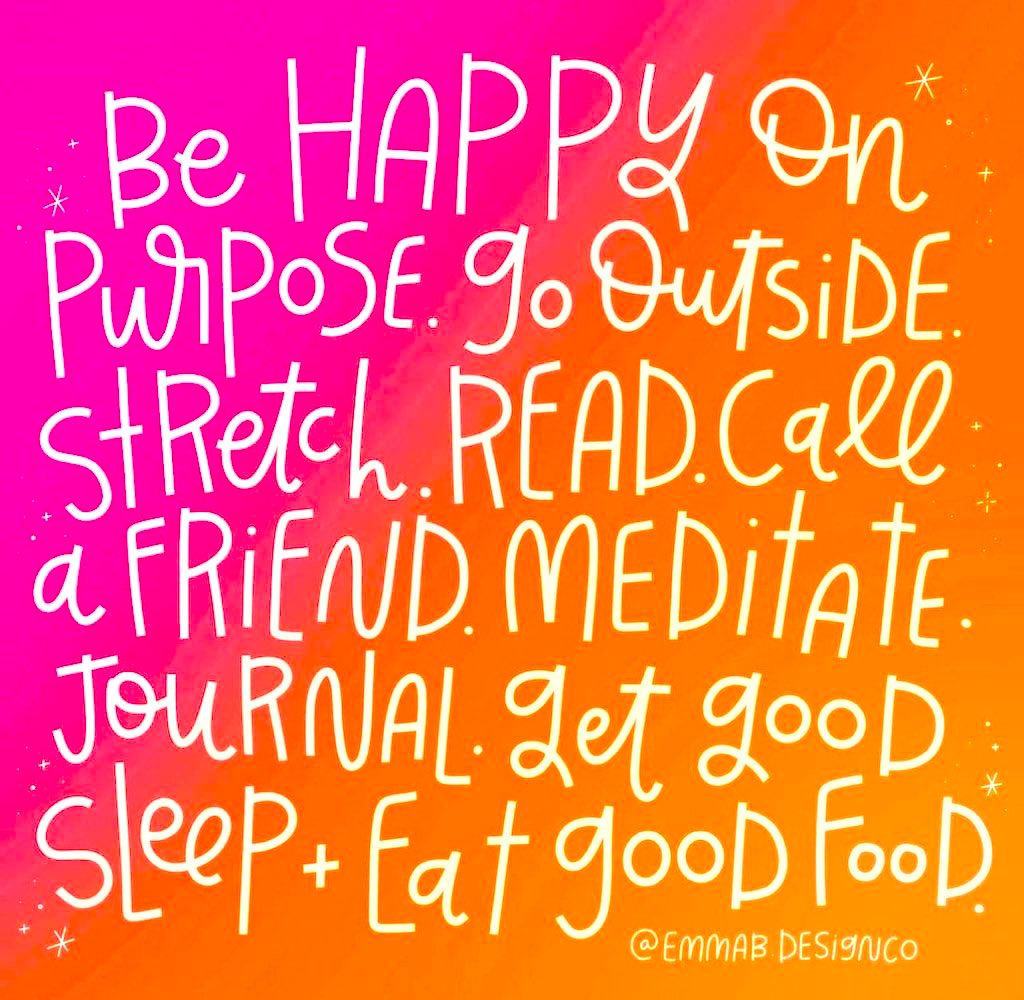 Be HAPPY On
PurPoSE. go OutSiDE.
StRetch. READ. Call
a FRiEND. MEDitAtE.
JOuRNAL. get gooD
SleeP + Eat gooD FooD.
@EMMAB.DESigNCO